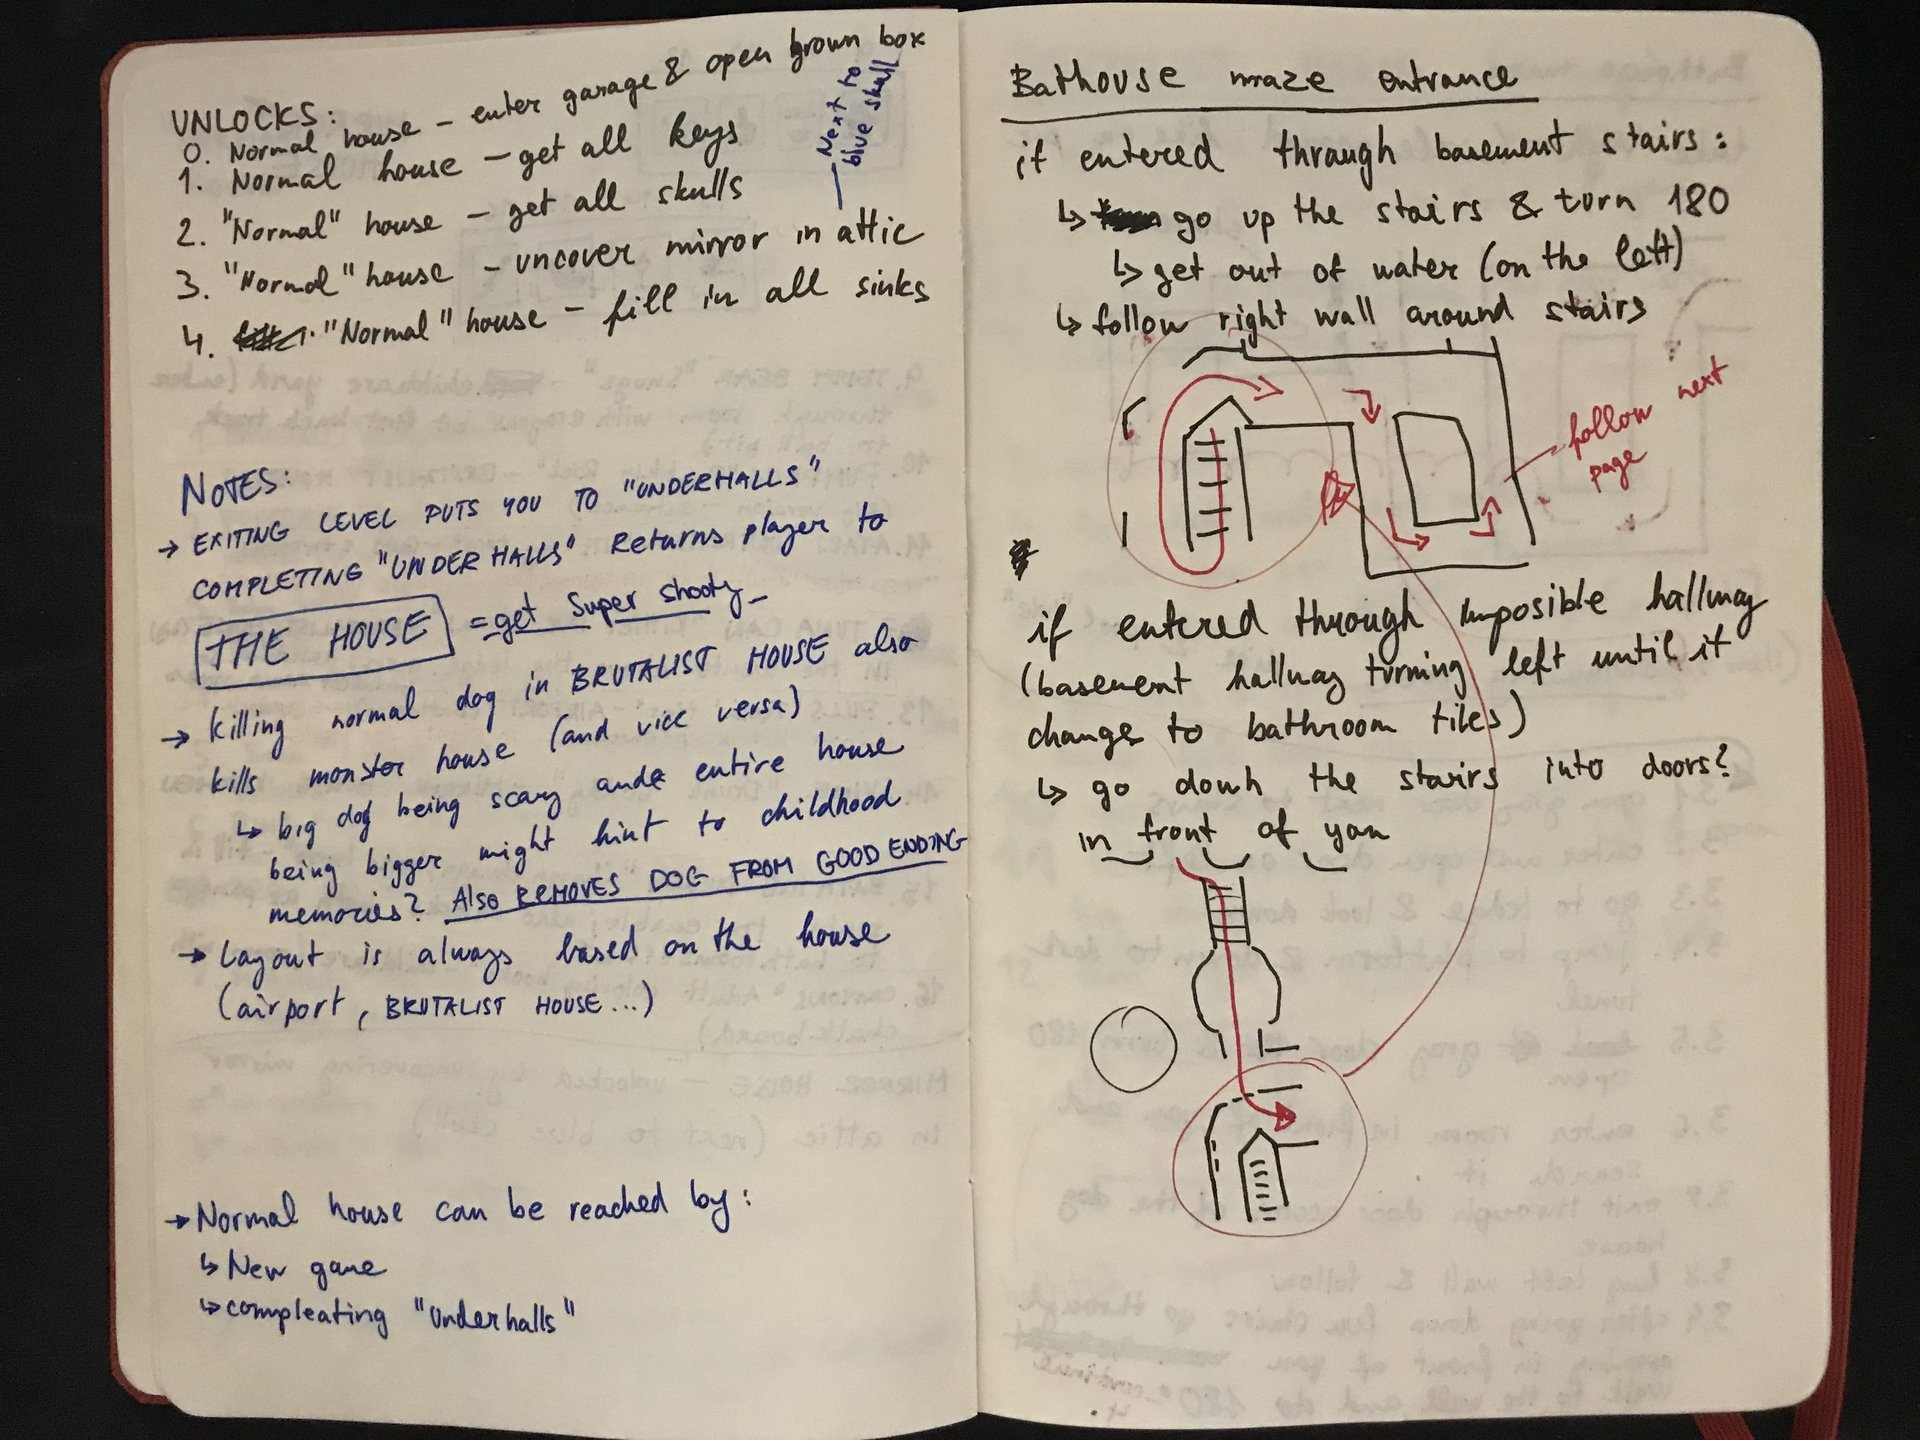 UNLOCKS:
0. Normal house - enter garage & open brown box
1. Normal house - get all keys
2. "Normal" house - get all skulls
3. "Normal" house - uncover mirror in attic
— Next to
blue skull
4. "Normal" house - fill in all sinks
NOTES:
→ EXITING LEVEL PUTS YOU TO "UNDERHALLS"
COMPLETING "UNDERHALLS" Returns player to
THE HOUSE = get Super shooty -
→ killing normal dog in BRUTALIST HOUSE also
kills monster house (and vice versa)
↳ big dog being scary ande entire house
being bigger might hint to childhood
memories? Also REMOVES DOG FROM GOOD ENDING
→ Layout is always based on the house
(airport, BRUTALIST HOUSE...)
→ Normal house can be reached by:
↳ New game
↳ compleating "Underhalls"
Bathouse maze entrance
if entered through basement stairs:
↳ go up the stairs & turn 180
↳ get out of water (on the left)
↳ follow right wall around stairs
follow next
page
if entered through Imposible hallway
(basement hallway turning left until it
change to bathroom tiles)
↳ go down the stairs into doors?
in front of you